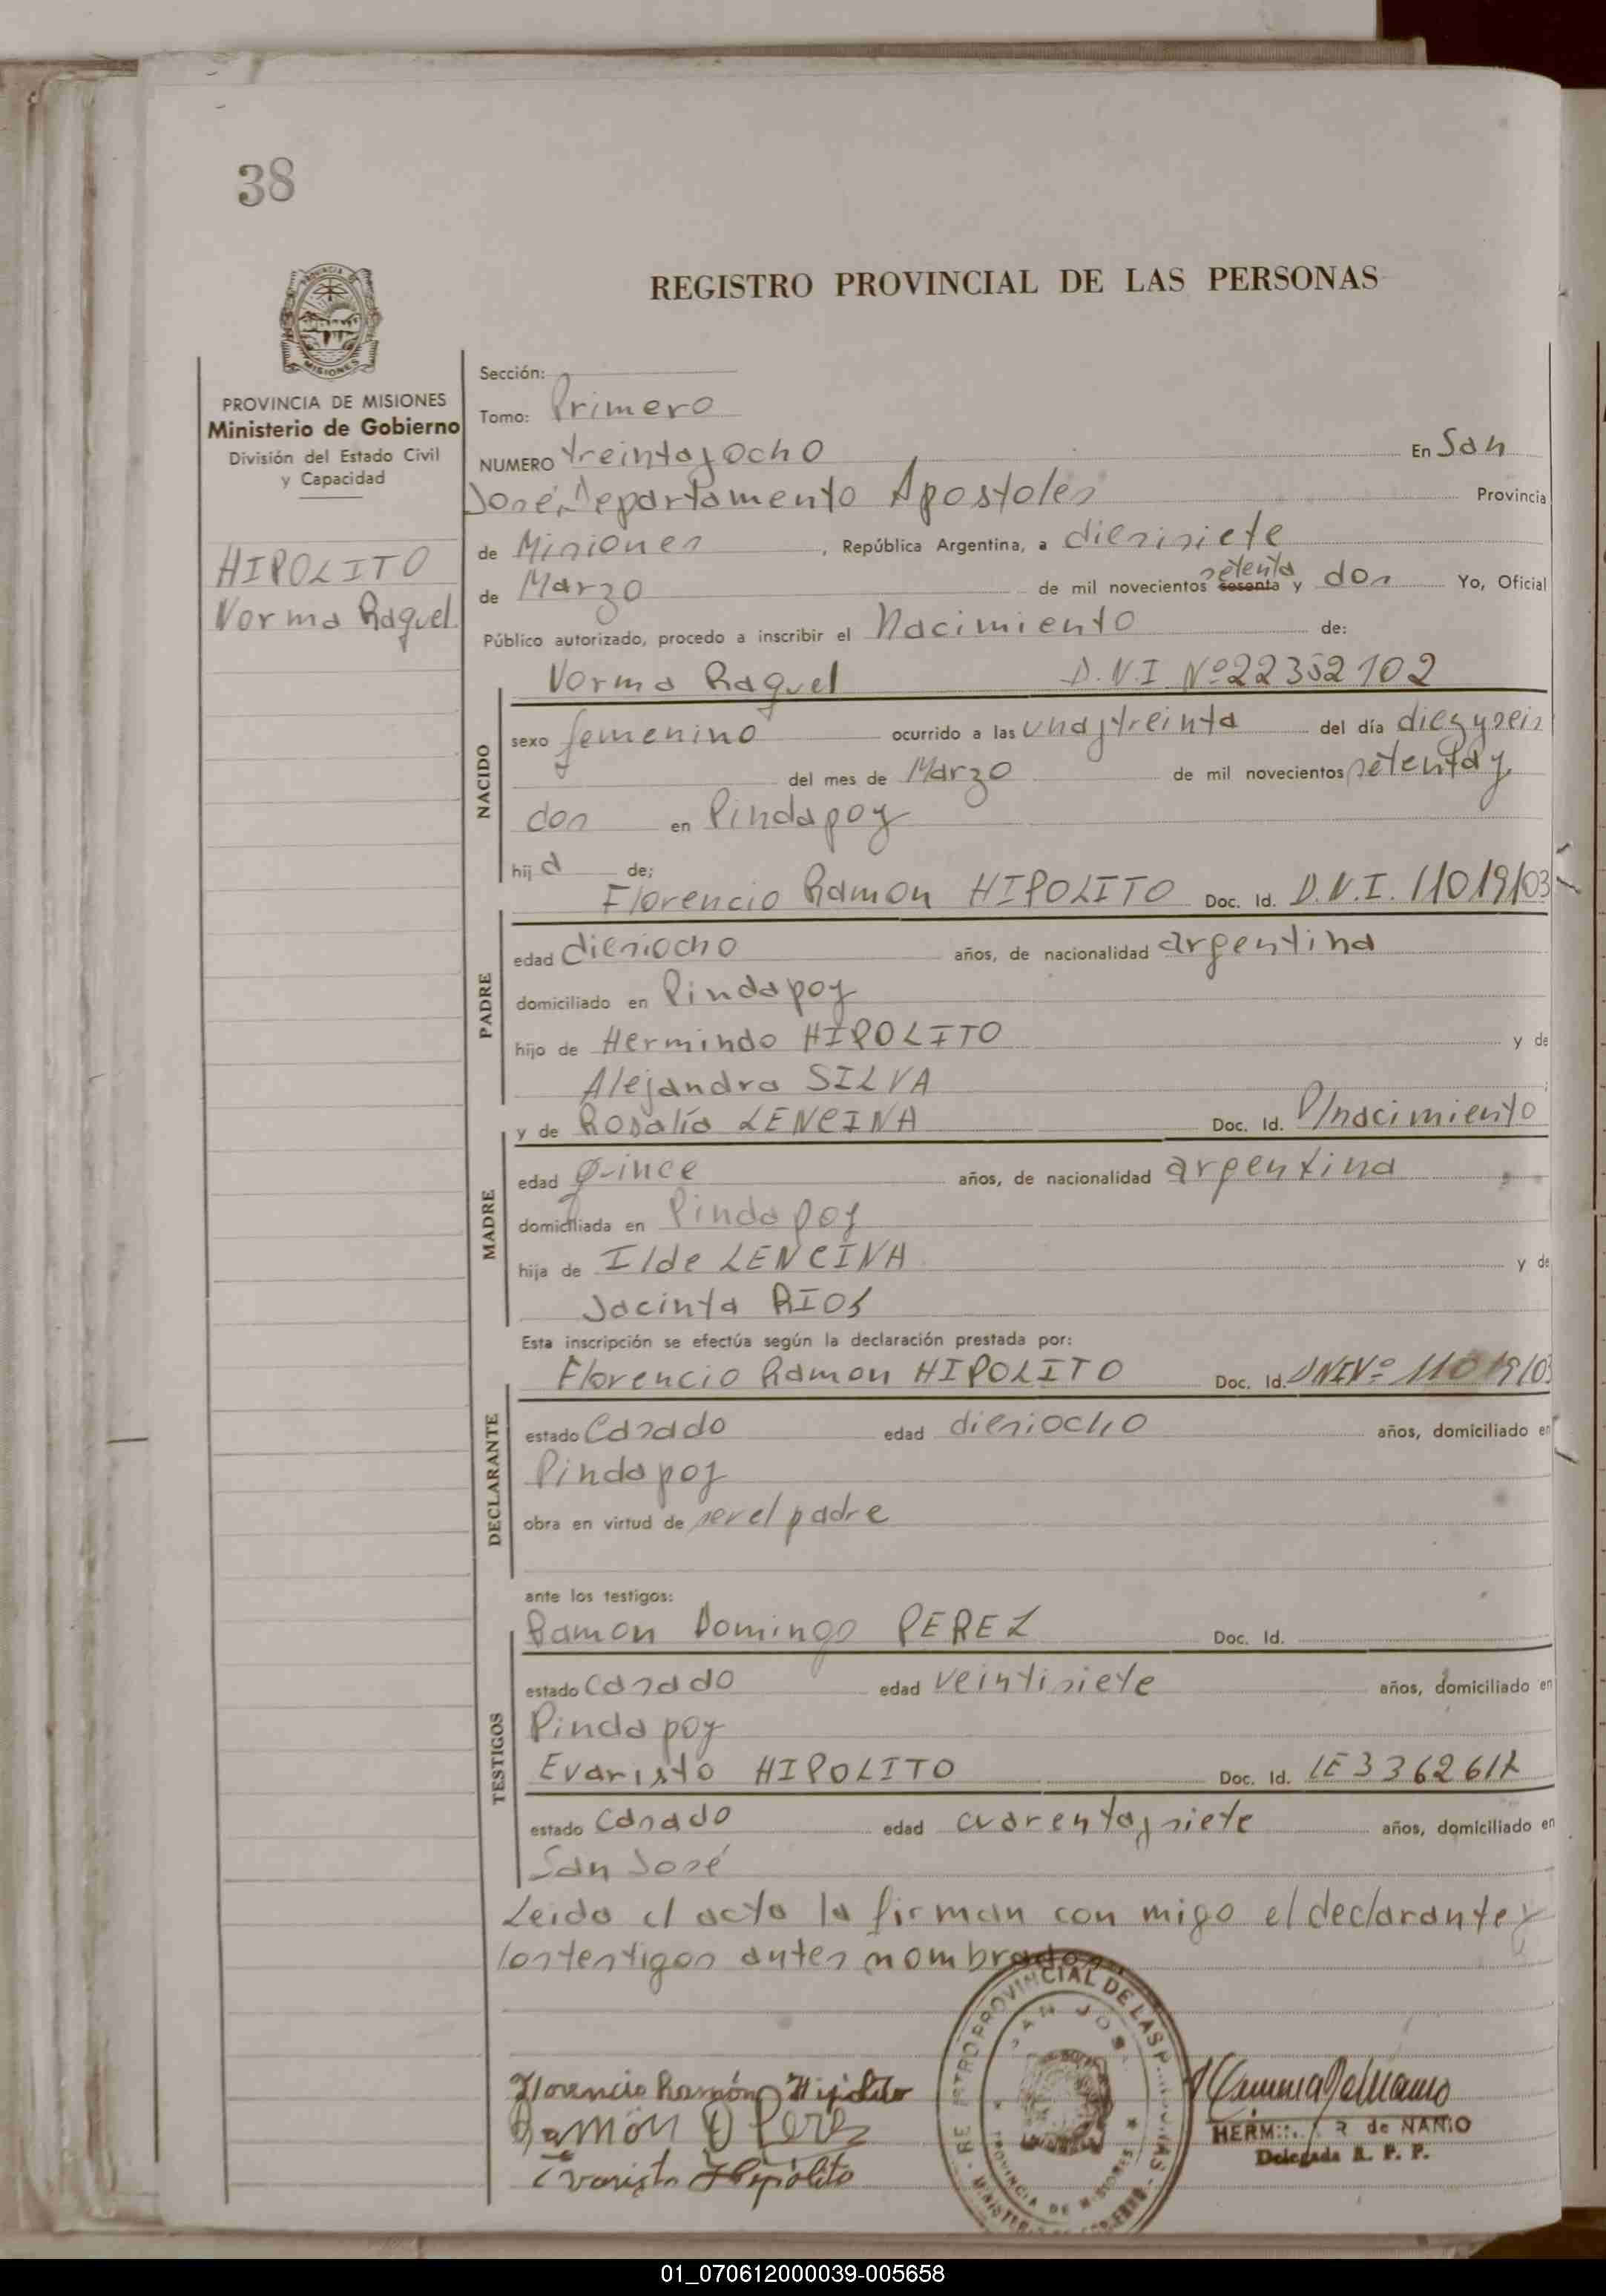 38
REGISTRO PROVINCIAL DE LAS PERSONAS
PROVINCIA DE
MISIONES
PROVINCIA DE MISIONES
Ministerio de Gobierno
División del Estado Civil
y Capacidad
HIPOLITO
Norma Raquel
Sección:
Tomo: Primero
NUMERO treintayocho En San
José, Departamento Apostoles Provincia
de Misiones , República Argentina, a diesisiete
setenta
de Marzo de mil novecientos sesenta y dos Yo, Oficial
Público autorizado, procedo a inscribir el Nacimiento de:
Norma Raquel D.N.I Nº 22352102
NACIDO
sexo femenino ocurrido a las unaytreinta del día diezyseis
del mes de Marzo de mil novecientos setentay
dos en Pindapoy
hij a de;
Florencio Ramon HIPOLITO Doc. Id. D.N.I. 11019103
PADRE
edad diesiocho años, de nacionalidad argentina
domiciliado en Pindapoy
hijo de Hermindo HIPOLITO y de
Alejandra SILVA
y de Rosalía LENCINA Doc. Id. P/nacimiento
MADRE
edad quince años, de nacionalidad argentina
domiciliada en Pindapoy
hija de Ilde LENCINA y de
Jacinta RIOS
Esta inscripción se efectúa según la declaración prestada por:
Florencio Ramon HIPOLITO Doc. Id. DNI Nº 11019103
DECLARANTE
estado Casado edad diesiocho años, domiciliado en
Pindapoy
obra en virtud de ser el padre
ante los testigos:
Ramon Domingo PEREZ Doc. Id.
TESTIGOS
estado casado edad veintisiete años, domiciliado en
Pindapoy
Evaristo HIPOLITO Doc. Id. LE
estado Casado edad cuarentaysiete años, domiciliado en
San José
Leida el acta la firman con migo el declarante y
los testigos antes nombrados.
Florencio Ramón Hipólito
Ramón D Perez
Evaristo Hipólito
PROVINCIAL DE LAS
SAN JOSE
PROVINCIA DE MISIONES
de NANIO
Delegada R. P. P.
01_070612000039-005658